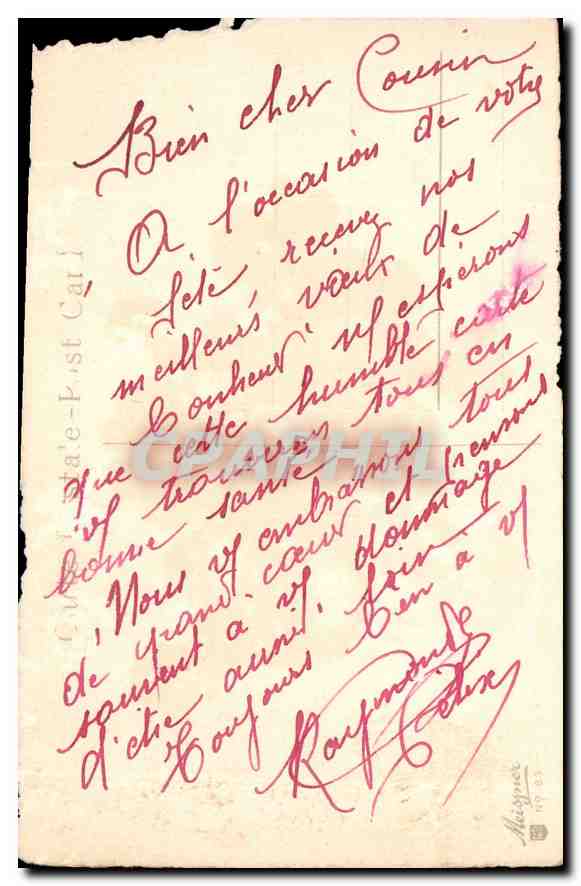 Bien cher Cousin
A l'occasion de votre
fète, recevez nos
meilleurs vœux de
bonheur. vs espérons
que cette humble carte
vs trouvera tous en
bonne santé.
Nous vs embrassons tous
de grand cœur et pensons
souvent a vs dommage
d'etre aussi loin.
Toujours bien à vs
Raymonde
Carte Postale-Post Card
CPAPHIL
Meissner
Nº 83